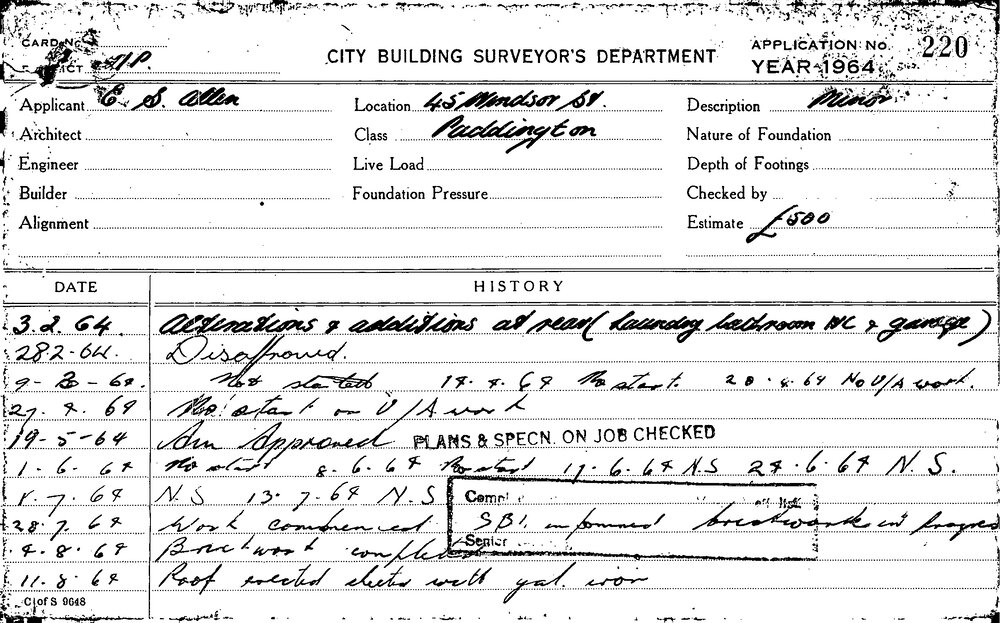 CARD No.
CITY BUILDING SURVEYOR'S DEPARTMENT
APPLICATION No. 220
YEAR 1964
Applicant E. S. Allen
Location 45 Windsor St.
Description Minor
Architect
Class Paddington
Nature of Foundation
Engineer
Live Load
Depth of Footings
Builder
Foundation Pressure
Checked by
Alignment
Estimate £500
DATE
HISTORY
3.2.64. Alterations & additions at rear (laundry bathroom WC & garage)
28.2.64. Disapproved.
9-3-64. Not started 14.4.64 No start. 20.4.64 No U/A work.
27.4.64 No start on U/A work
19-5-64 Am Approved PLANS & SPECN. ON JOB CHECKED
1.6.64 No start 8.6.64 No start 17.6.64 N.S 24.6.64 N.S.
1.7.64 N.S 13.7.64 N.S
28.7.64 Work commenced SBI. informed brickwork in progress
4.8.64 Brickwork completed
Senior
11.8.64 Roof erected sheeted with gal. iron
C of S 9648